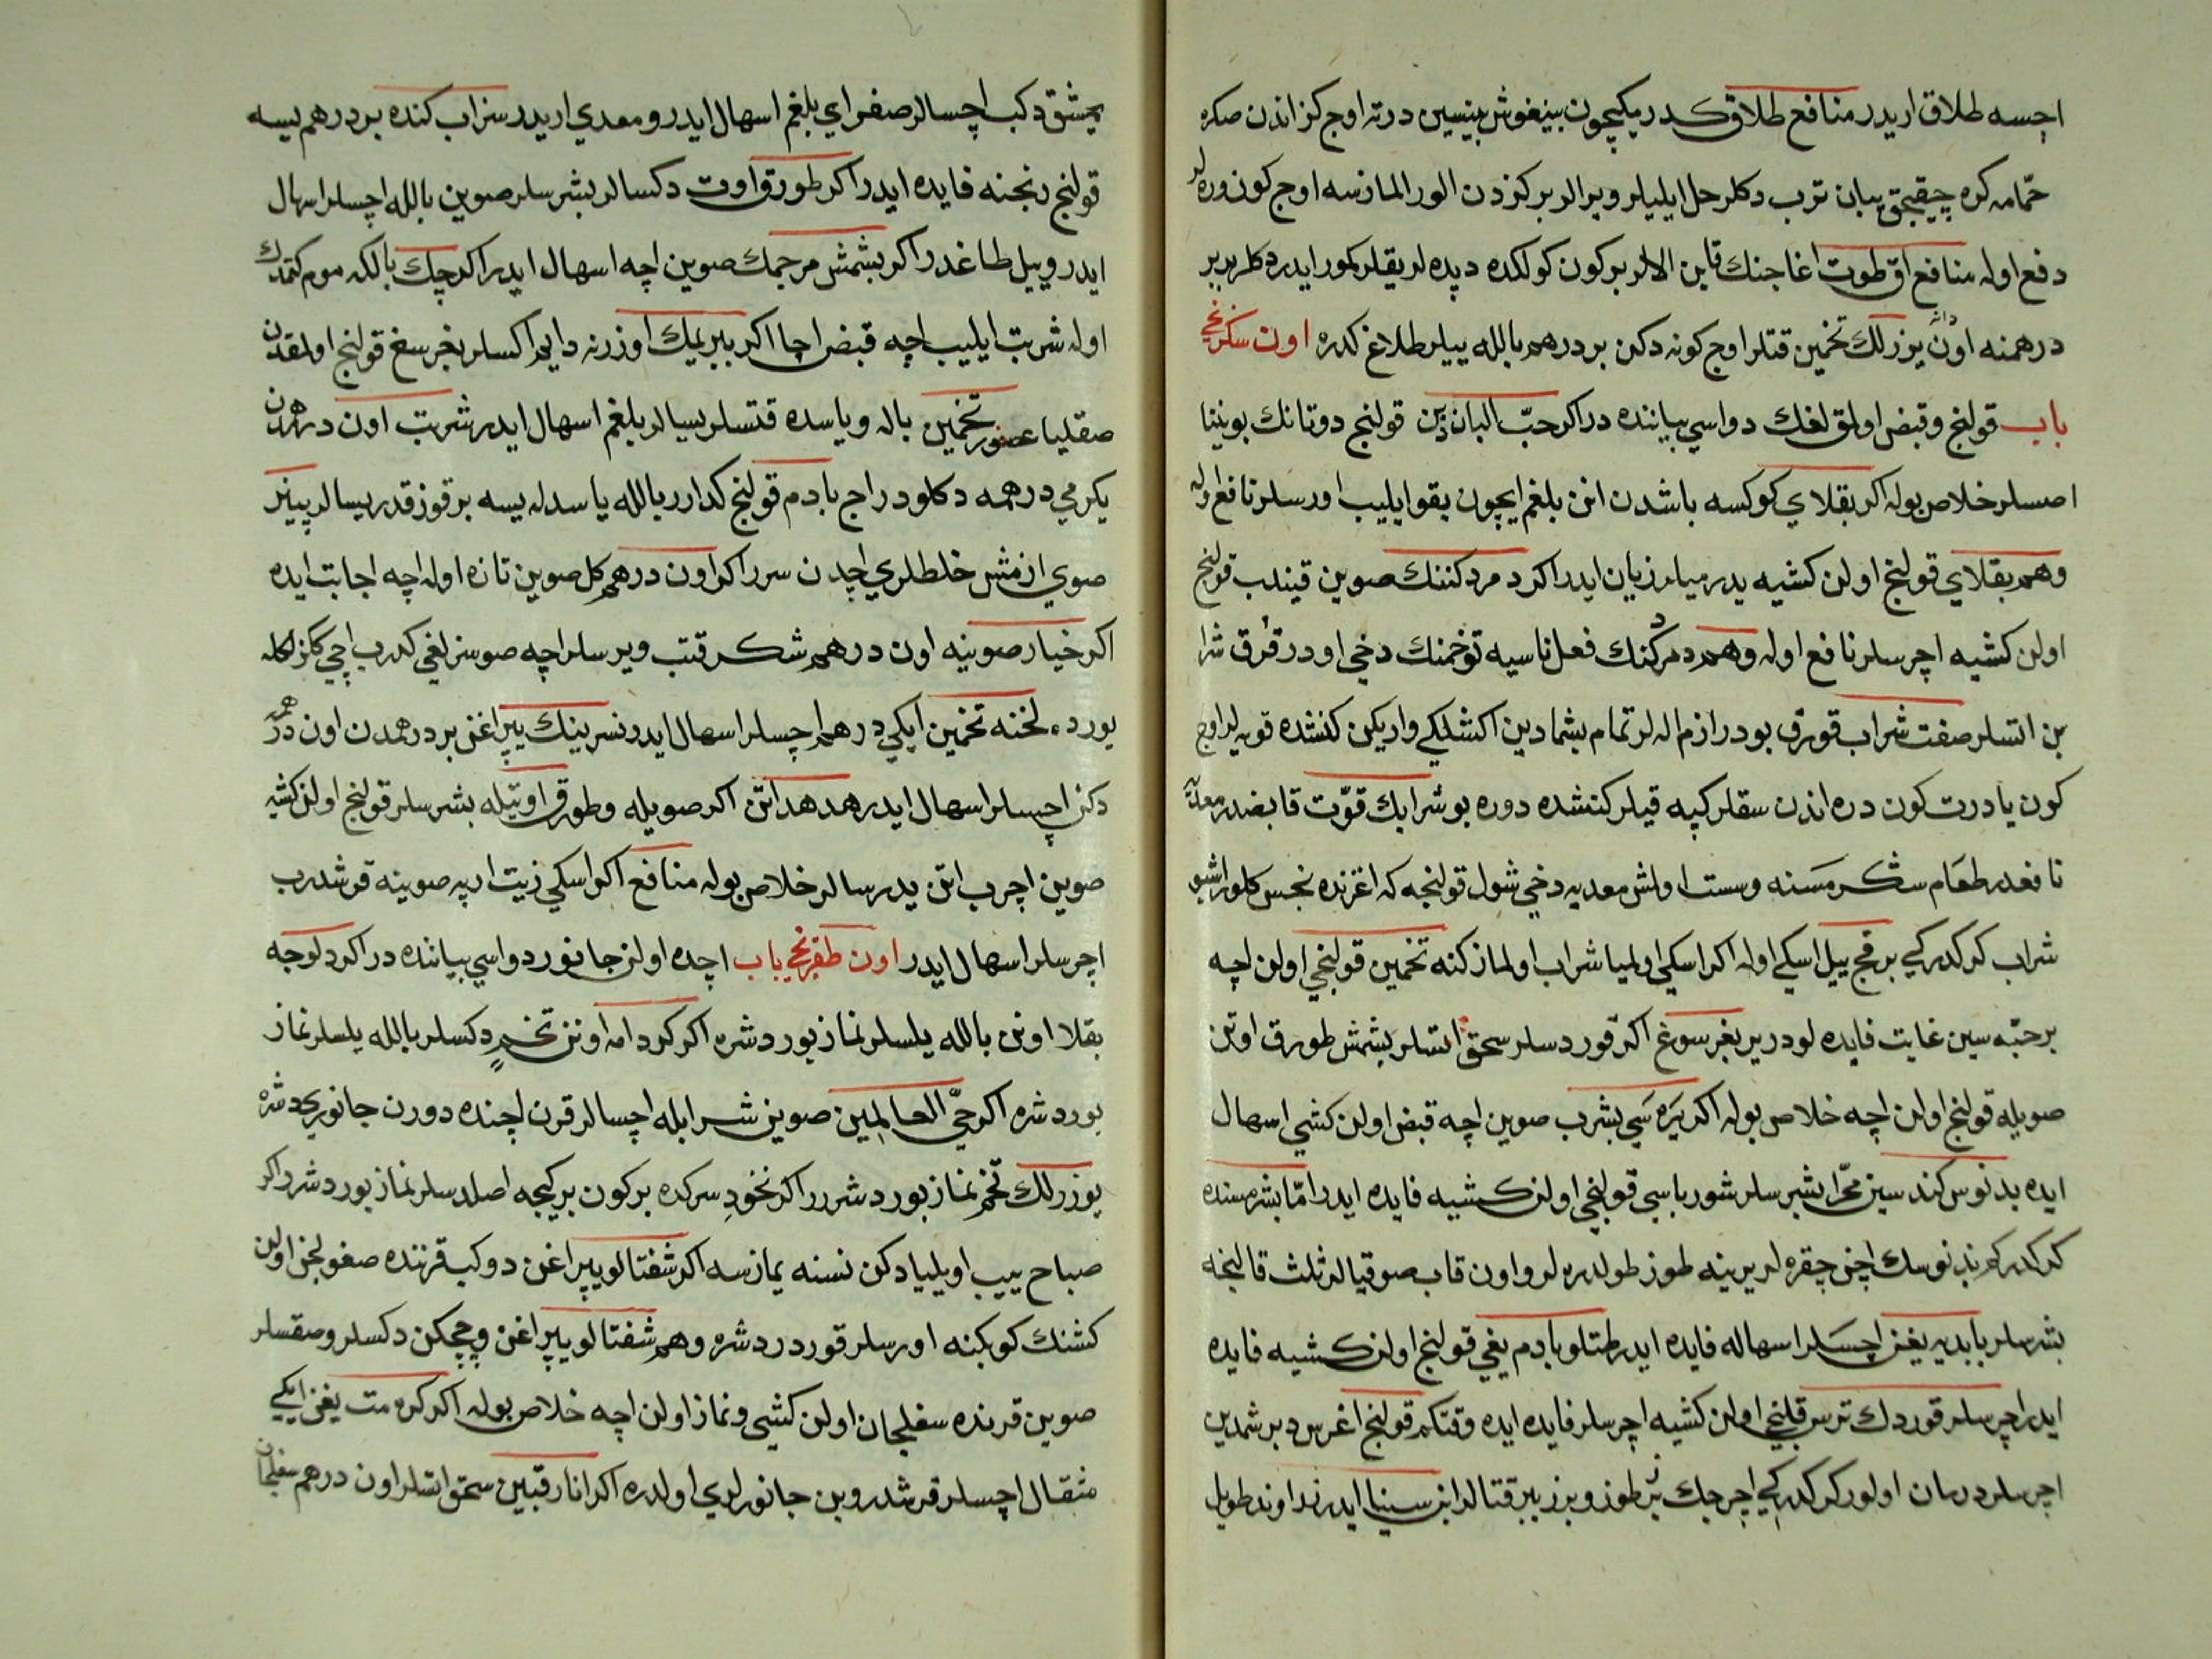 اچسه طلاق اریدر منافع طلاق كدرمكیچون بینغوش بینسین درته اوچ كز اندن صكره
حمّامه كره چیقیجق یبان ترب دكلر حل ایلیلر ویرالر بر كزدن الور المازسه اوچ كون وره لر
دفع اوله منافع اق طوت اغاجنك قابن الالر بر كون كولكده دپده لر یقلر كمور ایدر دكلر بربر
درهمنه اون دانه یوزرلك تخمین قتلر اوچ كونه دكن بر درهم بالله ییلر طلاغ كدره اون سكزنجی
باب قولنج وقبض اولق لغك دواسی بیاننده در اكر حبّ البان دین قولنج دوتانك بوینینا
اصسلر خلاص بوله اكر بقلای كوكسه باشدن انن بلغم ایچون یقو ایلیب اورسلر نافع اوله
وهم بقلای قولنج اولن كشیه یدرمیلر زیان ایدر اكر دمردكننك صوین قیندب قولنج
اولن كشیه اچرسلر نافع اوله وهم دمردكنك فعل ناسیه توخمنك دخی اودر قرق شرا
بن اتسلر صفت شراب قورق بودر ازم اله لر تمام بشمادین اكشلكی واریكن كنشده قویه لر اوچ
كون یا درت كون دره اندن سقلر كپه قیلر كنشده دوره بو شرابك قوّت قابضدر معدیه
نافعدر طعام سكرمسنه وسست اولش معدیه دخی شول قولنجه كه اغزنده نجس كلور اشبو
شراب كركدركی بر قچ ییل اسكی اوله اكر اسكی اولمیا شراب اولماز كنه تخمین قولنجی اولن اچه
بر حبّه سین غایت فایده لودریر بغرسوغ اكر قوردسلر سحق اتسلر بشمش طورق اوتن
صویله قولنج اولن اچه خلاص بوله اكر یره سی بشرب صوین اچه قبض اولن كشی اسهال
ایده بدنوس كندسین محرّا بشرسلر شورباسی قولنجی اولن كشیه فایده ایدر امّا بشرمسنده
كركدركم بدنوسك اچن چقره لر یرینه طوز طولدره لر واون قاب صو قیالر ثلث قالینجه
بشرسلر بابدیه یغن اچسلر اسهاله فایده ایدر طتلو بادم یغی قولنج اولن كشیه فایده
ایدر اچرسلر قوردك ترس قلنجی اولن كشیه اچرسلر فایده ایده وقتكم قولنج اغرسود برشمدین
اچرسلر درمان اولور كركدركی اچرجك بر طوز وبرز ببر قتالر ابن سینا ایدر زراوند طویل
یمشق دكب اچسالر صفرای بلغم اسهال ایدر ومعدی اریدر سزاب كنده بر درهم یسه
قولنج رنجنه فایده ایدر اكر طورق اوت دكسالر بشرسلر صوین بالله اچسلر اسهال
ایدر وییل طاغدر اكر بشمش مرجمك صوین اچه اسهال ایدر اكر چك بالكه موم كتمدك
اوله شربت ایلیب اچه قبض اچا اكر ببر یمك اوزرنه دایم اكسلر بغرسغ قولنج اولمقدن
صقلیا عصفور تخمین باله ویا سده قتسلر یسالر بلغم اسهال ایدر شربت اون درهمدن
یكرمی درهمه دكلودر اجی بادم قولنج كدارر بالله یا سدله یسه بر قوز قدر یسالر پینیر
صوی ازمش خلطلری اچدن سرر اكر اون درهم كل صوین تازه اوله اچه اجابت ایده
اكر خیار صوینه اون درهم شكر قتب ویرسلر اچه صوسزلغی كدرب اچی كزلكله
یورد ه لخنه تخمین ایكی درهم اچسلر اسهال ایدر نسرینك یپراغن بر درهمدن اون درهمه
دكن اچسلر اسهال ایدر هدهد اتن اكر صویله وطورق اوتیله بشرسلر قولنج اولن كشیه
صوین اچرب اتن یدرسالر خلاص بوله منافع اكر اسكی زیت ارپه صوینه قرشدرب
اچرسلر اسهال ایدر اون طقزنجی باب اچده اولن جانور دواسی بیاننده در اكر دلوجه
بقلا اونن بالله یلسلر نماز یورد شره اكر كرد امه اونن تخم دكسلر بالله یلسلر نماز
یورد شره اكر حیّ العالمین صوین شرابله اچسالر قرن اچنده دورن جانوری دشره
یوزرلك تخم نماز بورد شرر اكر نخود سركده بر كون بر كیجه اصلدسلر نماز بورد شرر اكر
صباح ییب اویلیادكن نسنه یمازسه اكر شفتالو یپراغن دوكب قرننده صغولجن اولن
كشنك كوبكنه اورسلر قورد ردشره وهم شفتالو یپراغن وچچكن دكسلر وصقسلر
صوین قرننده سغلجان اولن كشی ونماز اولن اچه خلاص بوله اكر كره مت یغن ایكی
مثقال اچسلر قرشدروبن جانورلری اولدره اكر انار قبین سحق اتسلر اون درهم سغلجان